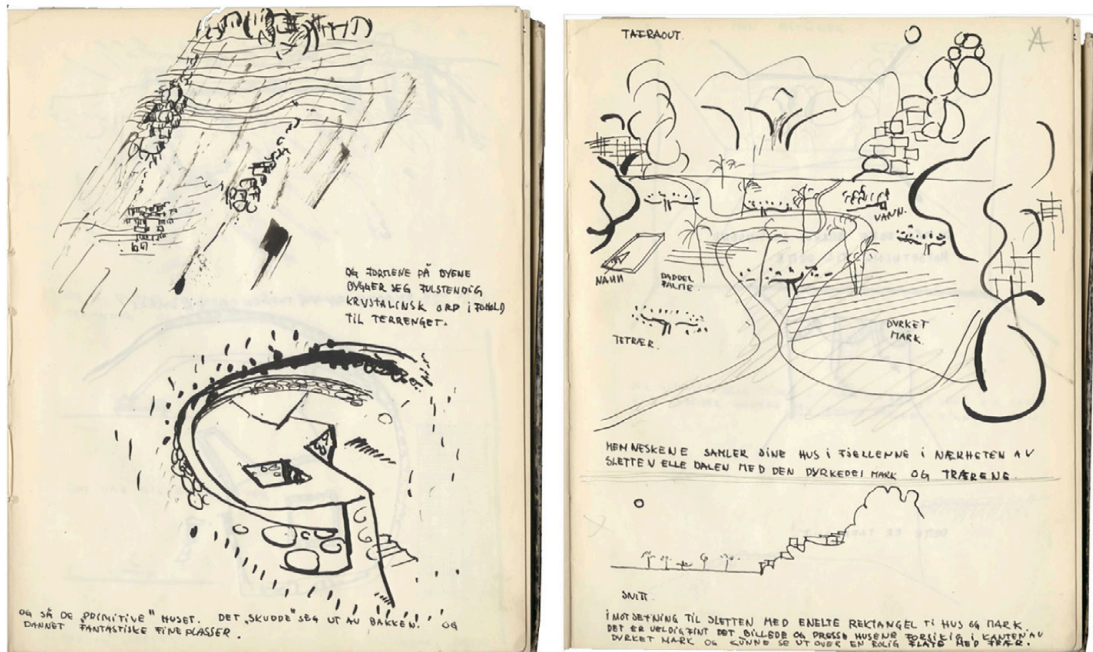 OG FORMENE PÅ BYENE
BYGGER SEG FULSTENDIG
KRYSTALINSK OPP I FOHOLD
TIL TERRENGET.
OG SÅ DE „PRIMITIVE" HUSET. DET „SKUDDE" SEG UT AV BAKKEN. OG
DANNET FANTASTISKE FINE PLASSER.
TAFRAOUT.
VANN.
VANN
DADDEL
PALME.
DYRKET
MARK
TETRÆR.
MENNESKENE SAMLER SINE HUS I FJELLENNE I NÆRHETEN AV
SLETTEN ELLE DALEN MED DEN DYRKEDE MARK OG TRÆRENE.
SNITT.
I MOTSETNING TIL SLETTEN MED ENELTE REKTANGEL TI HUS OG MARK.
DET ER VELDIG FINT DET BILLEDE OG PRESSE HUSENE FORSIKIG I KANTEN AV
DYRKET MARK OG KUNNE SE UT OVER EN ROLIG FLATE MED TRÆR.